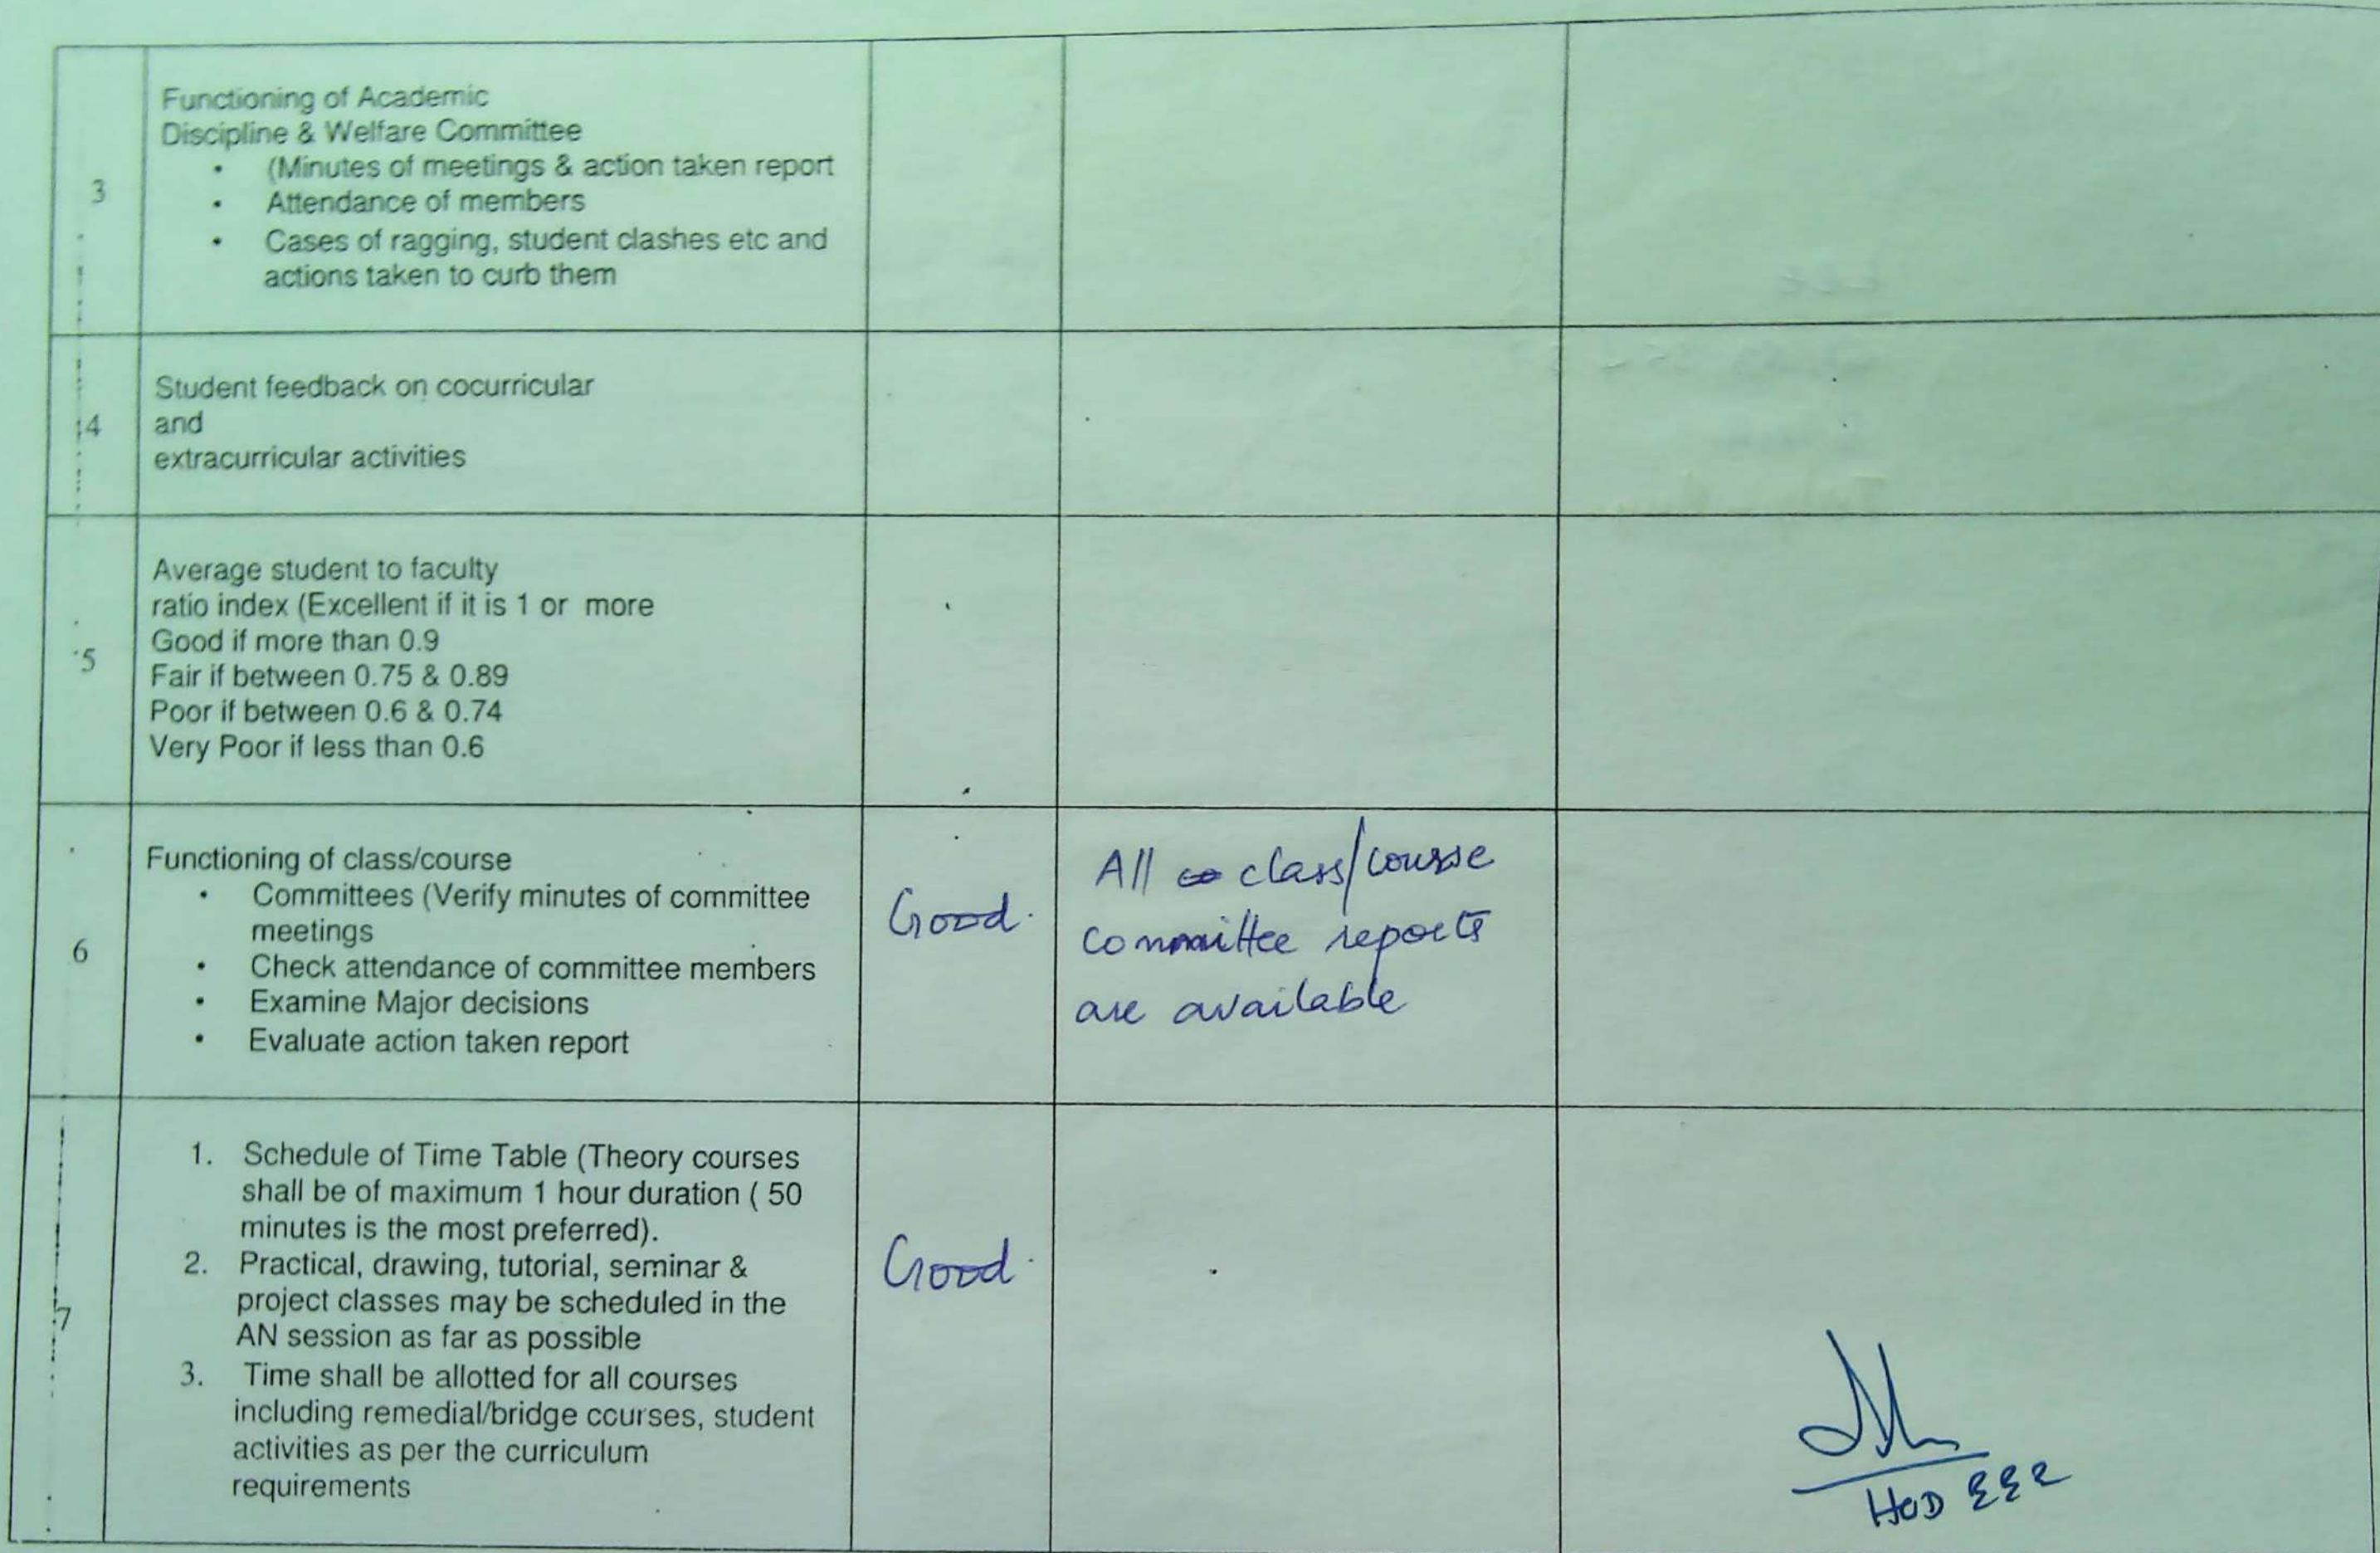 3
Functioning of Academic
Discipline & Welfare Committee
• (Minutes of meetings & action taken report
• Attendance of members
• Cases of ragging, student clashes etc and
actions taken to curb them
4
Student feedback on cocurricular
and
extracurricular activities
5
Average student to faculty
ratio index (Excellent if it is 1 or more
Good if more than 0.9
Fair if between 0.75 & 0.89
Poor if between 0.6 & 0.74
Very Poor if less than 0.6
6
Functioning of class/course
• Committees (Verify minutes of committee
meetings
• Check attendance of committee members
• Examine Major decisions
• Evaluate action taken report
Good.
All class/course
committee reports
are available
7
1. Schedule of Time Table (Theory courses
shall be of maximum 1 hour duration ( 50
minutes is the most preferred).
2. Practical, drawing, tutorial, seminar &
project classes may be scheduled in the
AN session as far as possible
3. Time shall be allotted for all courses
including remedial/bridge courses, student
activities as per the curriculum
requirements
Good.
HOD EEE